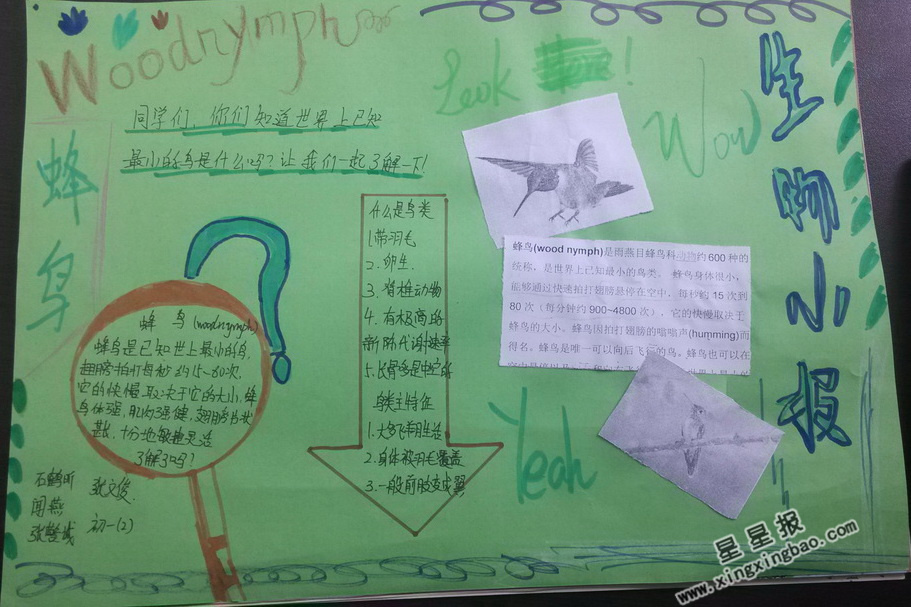 Woodnymph
Look !
Wow
生物小报
蜂鸟
同学们,你们知道世界上已知
最小的鸟是什么吗?让我们一起了解一下!
什么是鸟类
1.带羽毛
2.卵生
3.脊椎动物
4.有极高的
新陈代谢速率
5.长骨多是中空的
鸟类主特征
1.大多飞翔生活
2.身体被羽毛覆盖
3.一般前肢变成翼
蜂鸟(wood nymph)是雨燕目蜂鸟科 约600种的
统称,是世界上已知最小的鸟类。蜂鸟身体很小,
能够通过快速拍打翅膀悬停在空中,每秒约15次到
80次(每分钟约900~4800次),它的快慢取决于
蜂鸟的大小。蜂鸟因拍打翅膀的嗡嗡声(humming)而
得名。蜂鸟是唯一可以向后飞行的鸟。蜂鸟也可以在
蜂 鸟(woodnymph)
蜂鸟是已知世上最小的鸟,
翅膀拍打每秒约15-80次,
它的快慢取决于它的大小,蜂
鸟体强,肌肉强健,翅膀
甚长,十分地
了解了吗?
Yeah
张文俊
闻燕
初一(2)
星星报
www.xingxingbao.com